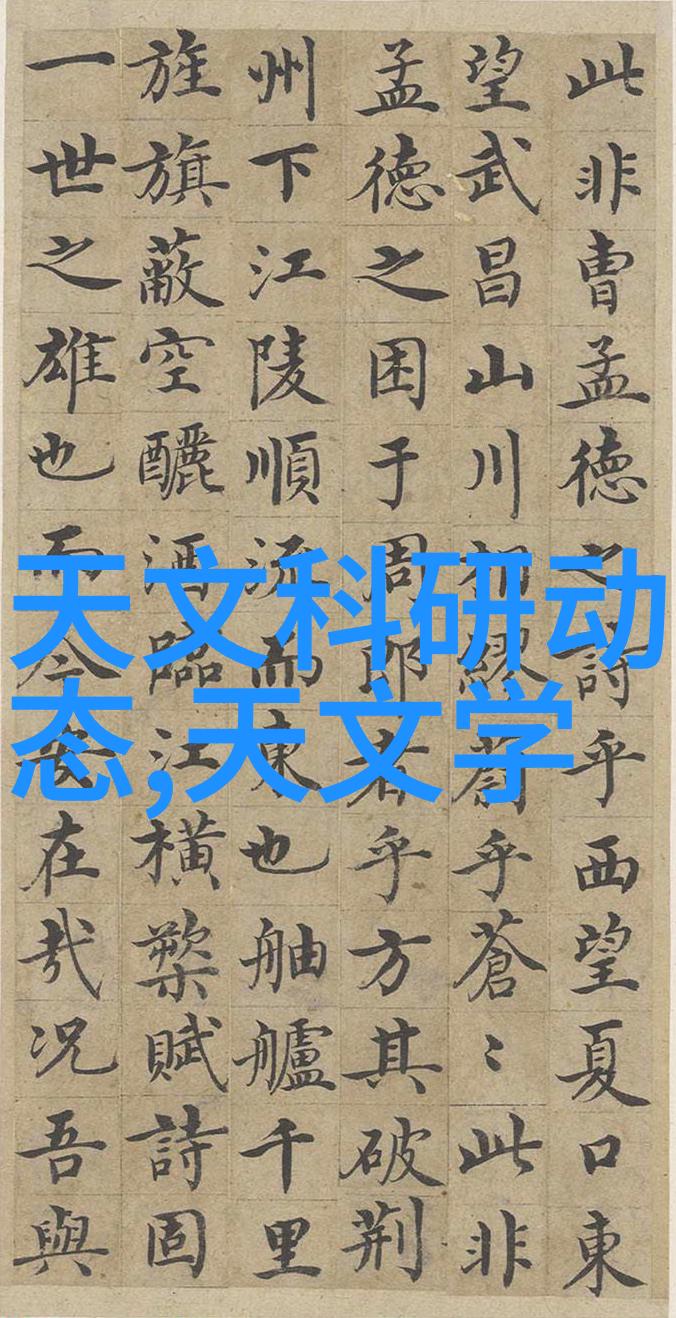 此非曹孟德之詩乎西望夏口東
望武昌山川繆乎蒼〻此非
孟德之困于周郎者乎方其破荆
州下江陵順流而東也舳艫千里
旌旗蔽空釃酒臨江横槊賦詩固
一世之雄也而今安在哉况吾與
天文科研动
态,天文学